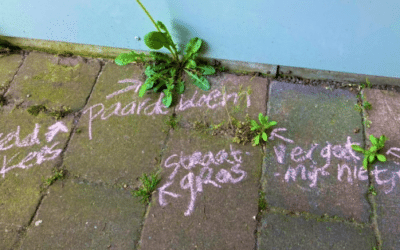 paardebloem
eld
kers
straat
gras
vergeet
mij niet